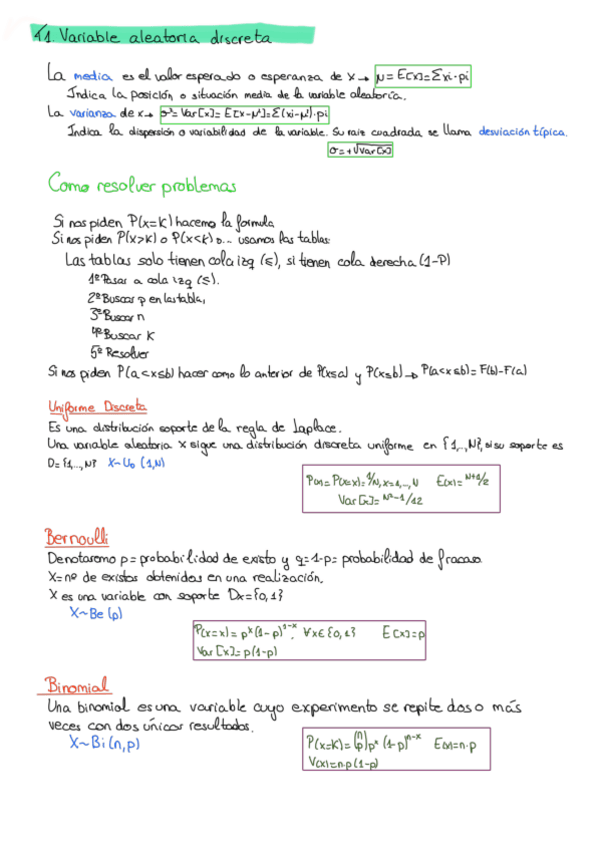 T1. Variable aleatoria discreta
La media es el valor esperado o esperanza de x → μ = E[X]=Σxi·pi
Indica la posición o situación media de la variable aleatoria.
La varianza de x → σ²= Var[X]= E[X-μ²]=Σ(xi-μ²)·pi
Indica la dispersión o variabilidad de la variable. Su raiz cuadrada se llama desviación típica.
σ=+√Var[X]
Como resolver problemas
Si nos piden P(X=K) hacemo la formula
Si nos piden P(X>K) o P(X<K) o... usamos las tablas:
Las tablas solo tienen cola izq (≤), si tienen cola derecha (1-P)
1º Pasar a cola izq (≤).
2º Buscar p en las tabla,
3º Buscar n
4º Buscar K
5º Resolver
Si nos piden P(a<x≤b) hacer como lo anterior de P(x≤a) y P(x≤b) → P(a<x≤b)= F(b)-F(a)
Uniforme Discreta
Es una distribución soporte de la regla de Laplace.
Una variable aleatoria X sigue una distribución discreta uniforme en {1,..,N}, si su soporte es
D={1,...,N} X~U₀ (1,N)
P(x)= P(X=x)= 1/N, x=1,...,N E(x)= N+1/2
Var[X]= N²-1/12
Bernoulli
Denotaremo p= probabilidad de existo y q=1-p= probabilidad de fracaso
X=nº de existos obtenidos en una realización.
X es una variable con soporte Dx={0,1}
X~Be (p)
P(X=x)= pˣ(1-p)¹⁻ˣ, ∀x∈{0,1} E[X]=p
Var[X]= p(1-p)
Binomial
Una binomial es una variable cuyo experimento se repite dos o más
veces con dos únicos resultados.
X~Bi (n,p)
P(X=K)=(n p)pˣ (1-p)ⁿ⁻ˣ E(x)=n·p
V(x)=n·p(1-p)